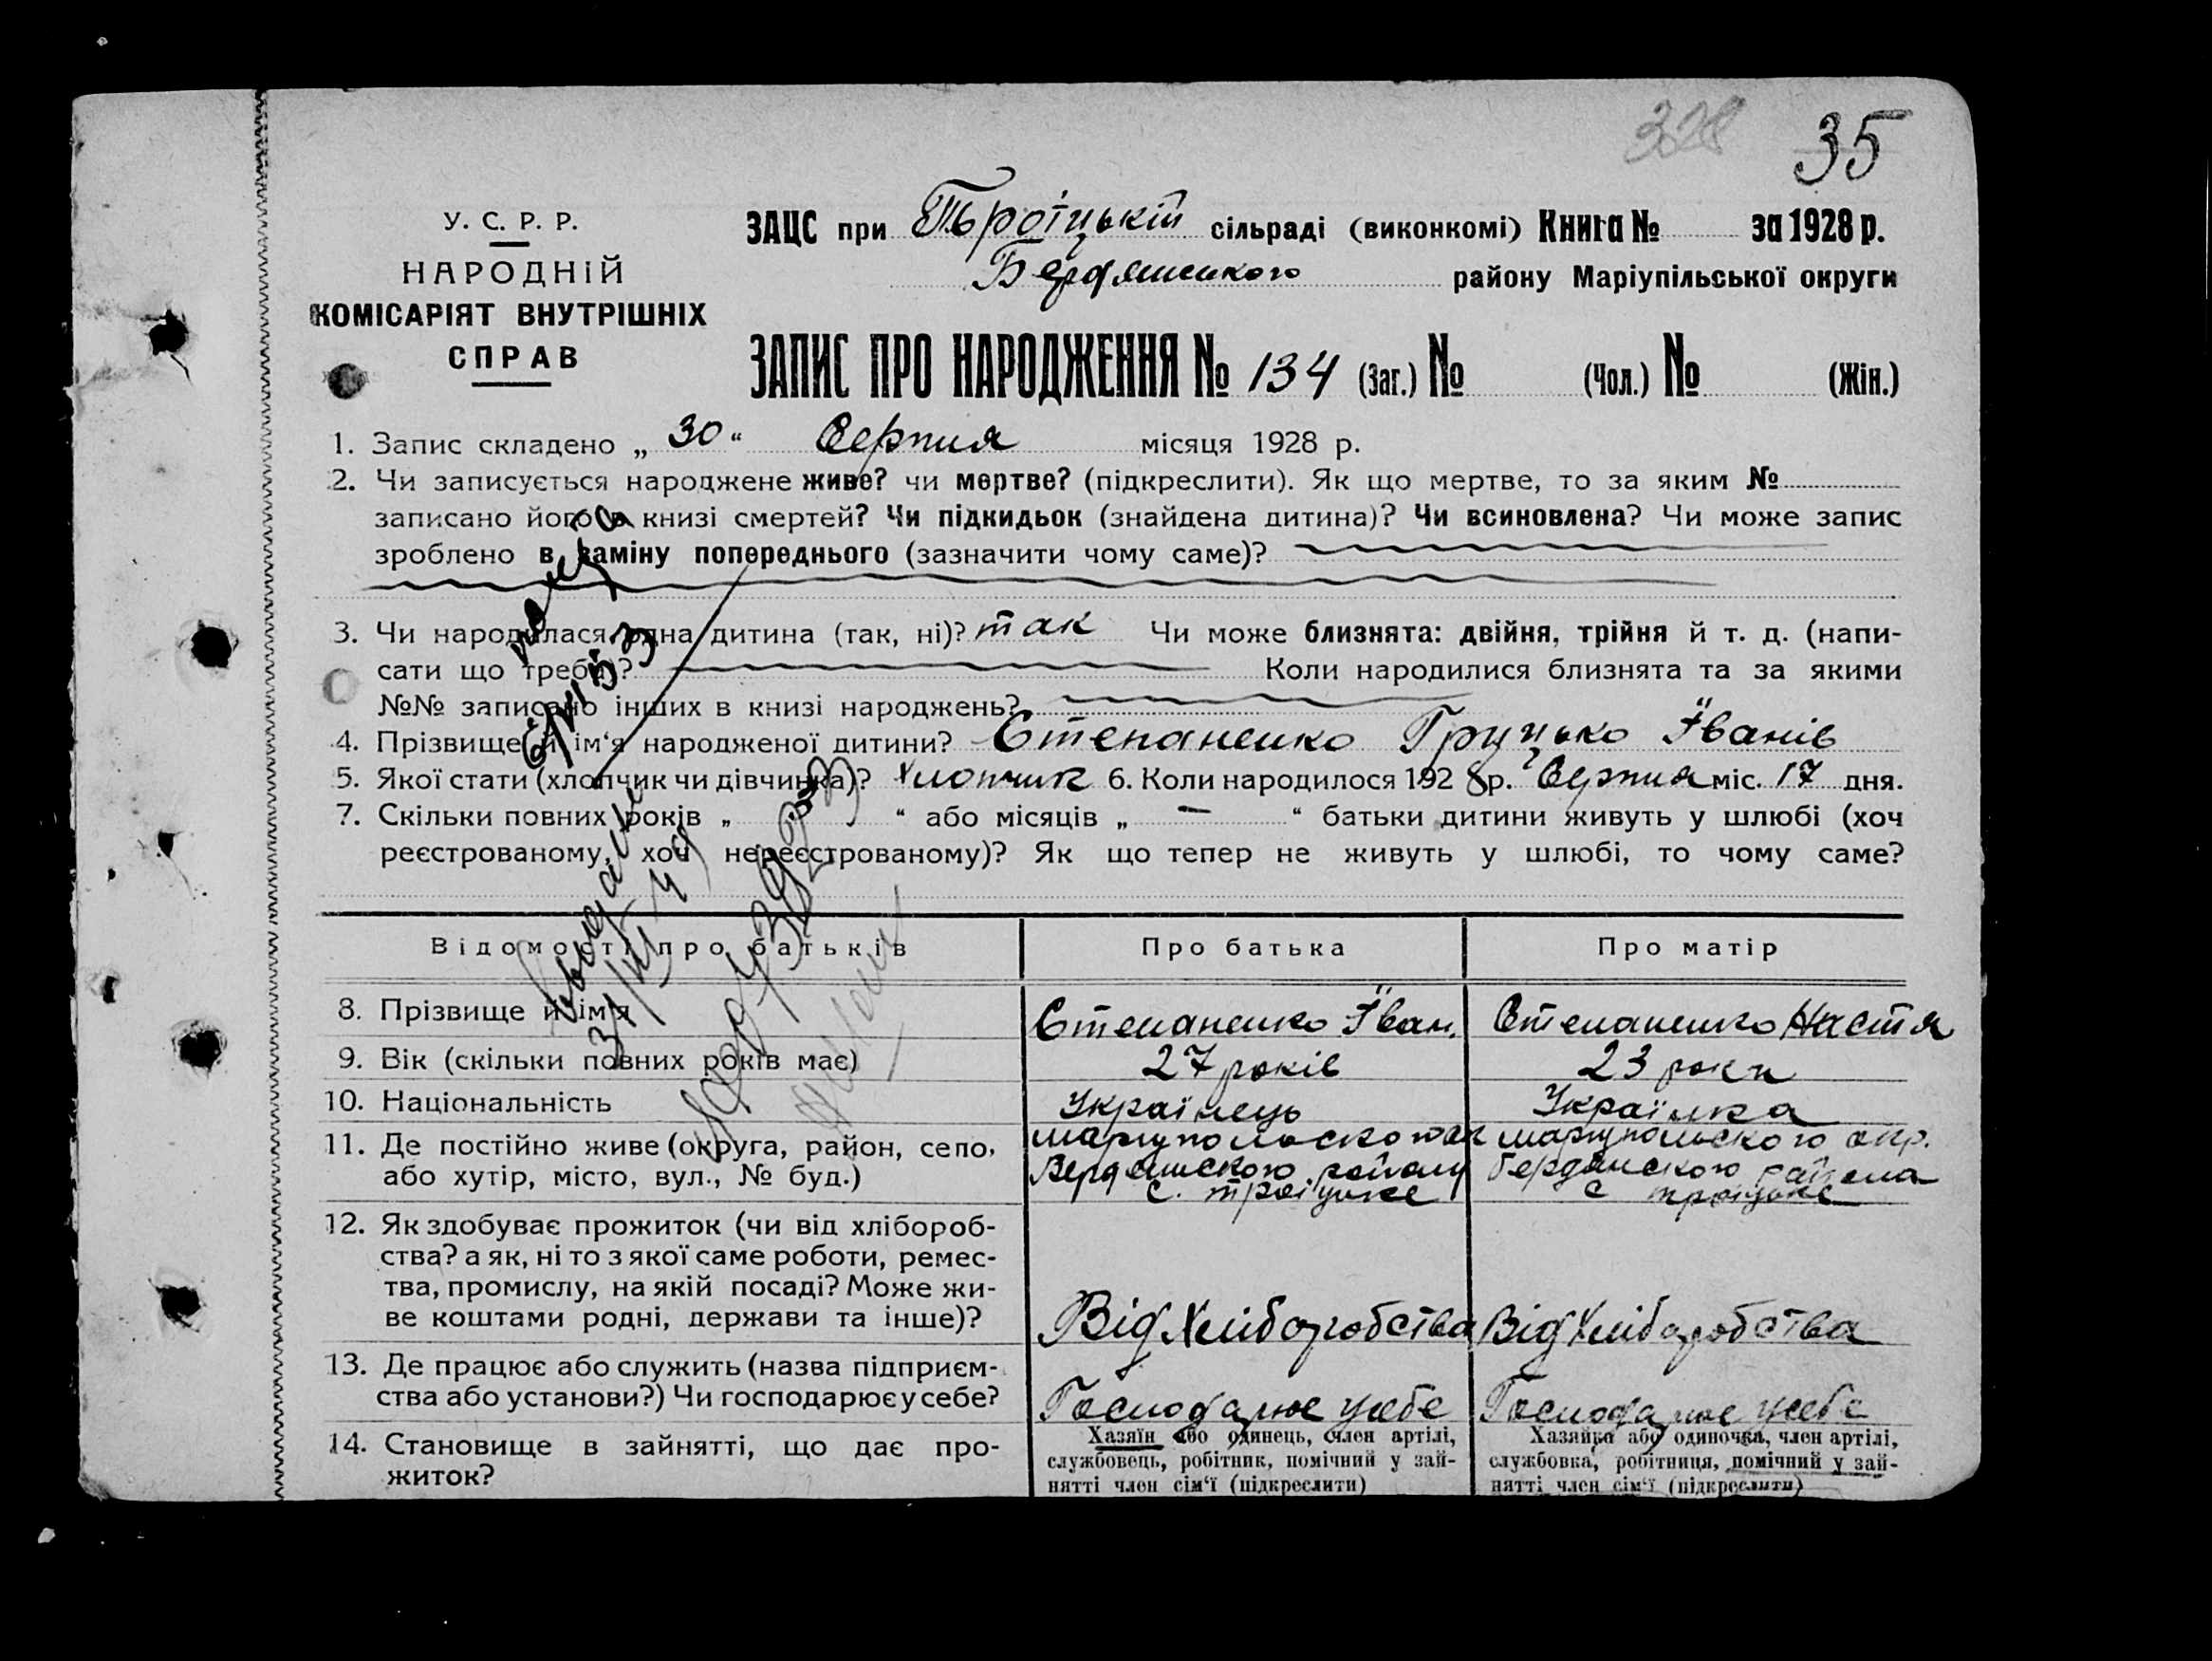 328 35
У. С. Р. Р.
НАРОДНІЙ
КОМІСАРІЯТ ВНУТРІШНІХ
СПРАВ
ЗАЦС при Троїцькій сільраді (виконкомі) Книга № за 1928 р.
Бердянського району Маріупільської округи
ЗАПИС ПРО НАРОДЖЕННЯ № 134 (Заг.) № (Чол.) № (Жін.)
1. Запис складено „ 30 “ Серпня місяця 1928 р.
2. Чи записується народжене живе? чи мертве? (підкреслити). Як що мертве, то за яким №
записано його в книзі смертей? Чи підкидьок (знайдена дитина)? Чи всиновлена? Чи може запис
зроблено в заміну попереднього (зазначити чому саме)?
3. Чи народилася одна дитина (так, ні)? так Чи може близнята: двійня, трійня й т. д. (напи-
сати що треба)? Коли народилися близнята та за якими
№№ записано інших в книзі народжень?
4. Прізвище й ім‘я народженої дитини? Степаненко Грицько Іванів
5. Якої стати (хлопчик чи дівчинка)? Хлопчик 6. Коли народилося 1928 р. Серпня міс. 17 дня.
7. Скільки повних років „ “ або місяців „ — “ батьки дитини живуть у шлюбі (хоч
реєстрованому, хоч нереєстрованому)? Як що тепер не живуть у шлюбі, то чому саме?
Відомості про батьків Про батька Про матір
8. Прізвище й ім‘я Степаненко Іван. Степаненко Настя
9. Вік (скільки повних років має) 27 років 23 роки
10. Національність Українець Українка
11. Де постійно живе (округа, район, село, Маріупольского Маріупольского окр.
або хутір, місто, вул., № буд.) Бердянского району Бердянского района
с. троіцке с троіцке
12. Як здобуває прожиток (чи від хлібороб-
ства? а як, ні то з якої саме роботи, ремес-
тва, промислу, на якій посаді? Може жи-
ве коштами родні, держави та інше)? Від Хліборобства Від Хліборобства
13. Де працює або служить (назва підприєм-
ства або установи?) Чи господарює у себе? Господарює у себе Господарює у себе
14. Становище в зайнятті, що дає про- Хазяїн або одинець, член артілі, Хазяйка або одиночка, член артілі,
житок? службовець, робітник, помічний у зай- службовка, робітниця, помічний у зай-
нятті член сім‘ї (підкреслити) нятті член сім‘ї (підкреслити)